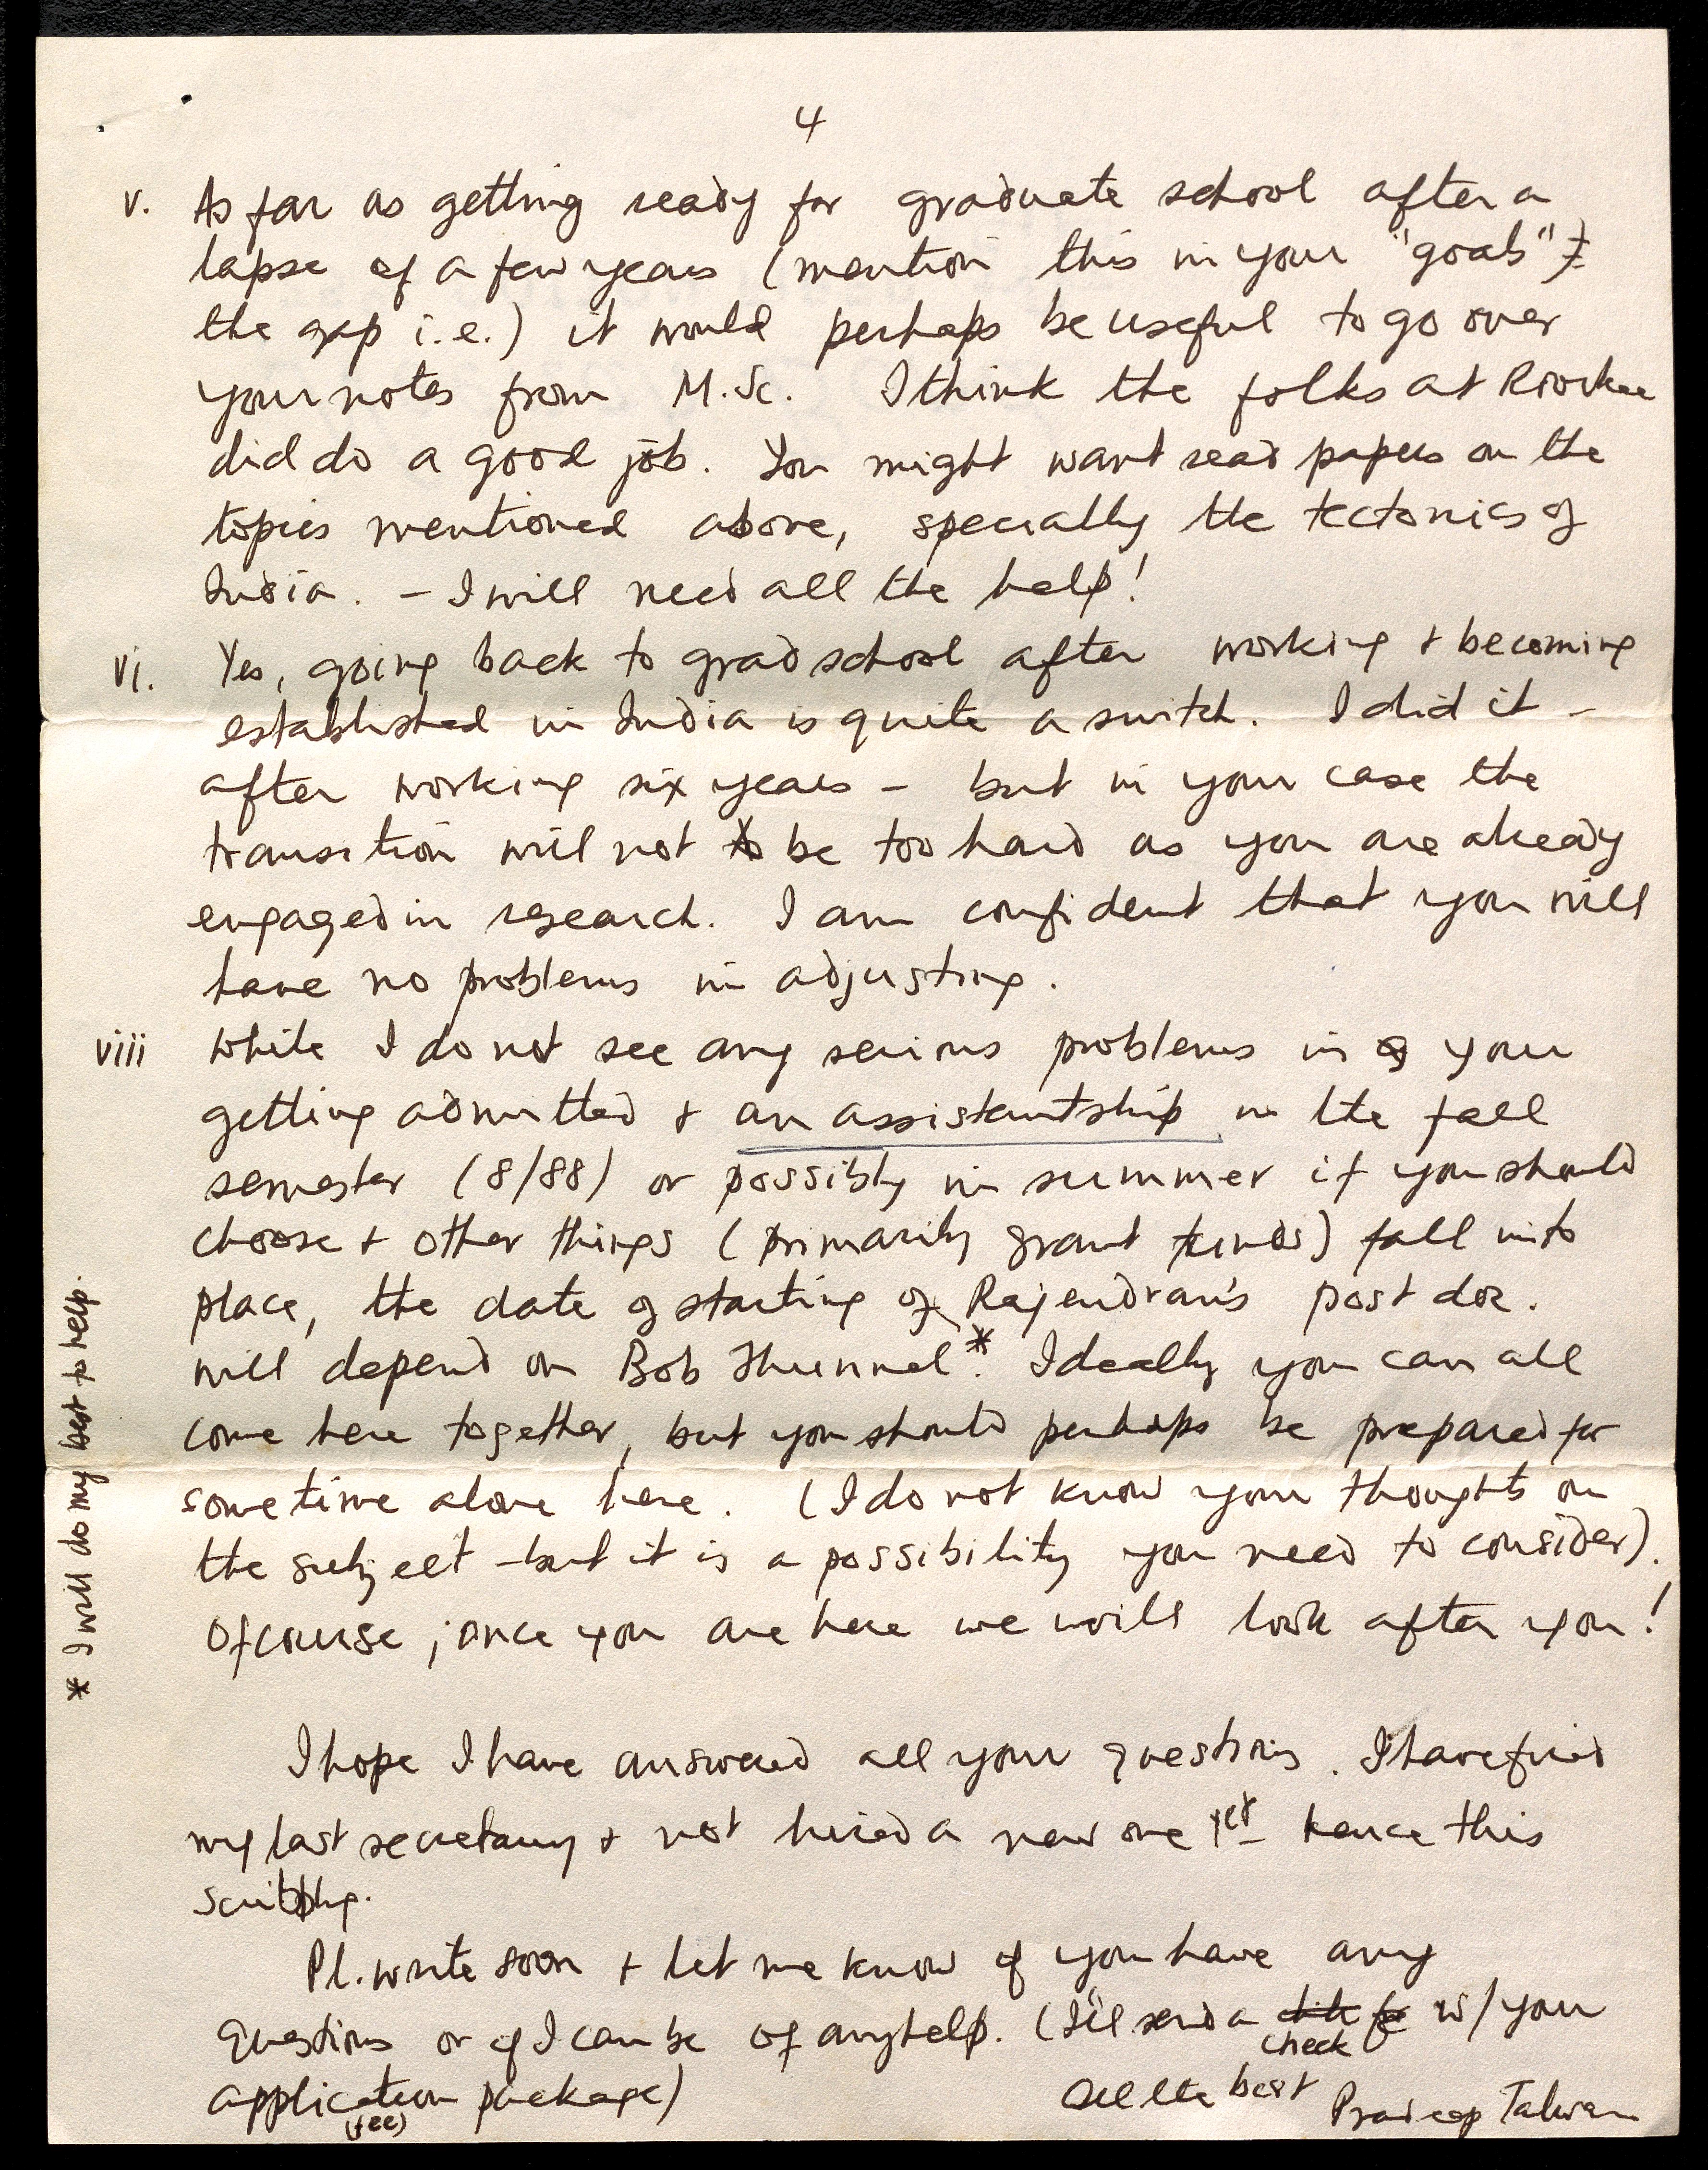 4
v. As far as getting ready for graduate school after a
lapse of a few years (mention this in your "goals")
the gap i.e.) it would perhaps be useful to go over
your notes from M.Sc. I think the folks at Roorkee
did do a good job. You might want read papers on the
topics mentioned above, specially the tectonics of
India. - I will need all the help!
vi. Yes, going back to grad school after working + becoming
established in India is quite a switch. I did it -
after working six years - but in your case the
transition will not to be too hard as you are already
engaged in research. I am confident that you will
have no problems in adjusting.
viii While I do not see any serious problems in your
getting admitted + an assistantship in the fall
semester (8/88) or possibly in summer if you should
choose + other things (primarily grant funds) fall into
place, the date of starting of Rajendran's post doc.
will depend on Bob Thunnel*. Ideally you can all
come here together, but you should perhaps be prepared for
sometime alone here. (I do not know your thoughts on
the subject - but it is a possibility you need to consider).
Ofcourse, once you are here we will look after you!
* I will do my best to help.
I hope I have answered all your questions. I have fired
my last secretary + not hired a new one yet - hence this
scribbling.
Pl. write soon + let me know if you have any
questions or if I can be of any help. (I'll send a check w/ your
application (fee) package)
All the best Pradeep Talwani